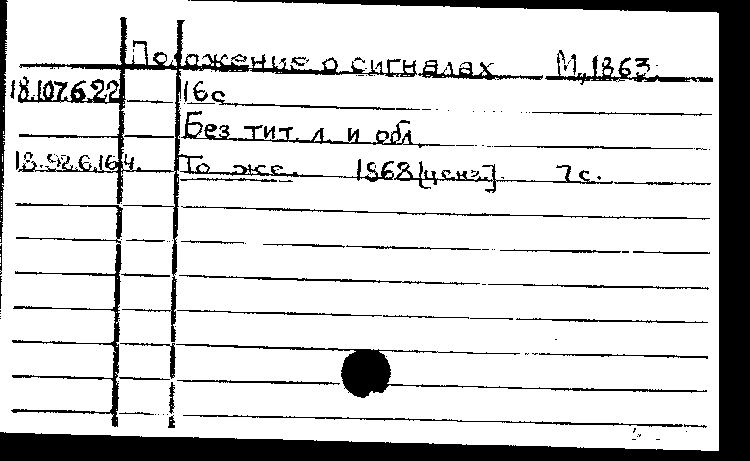 Положение о сигналах М., 1863.
18.107.6.22 16 с
Без тит. л. и обл.
18.92.6.164. То же. 1868 [ценз.] 7 с.